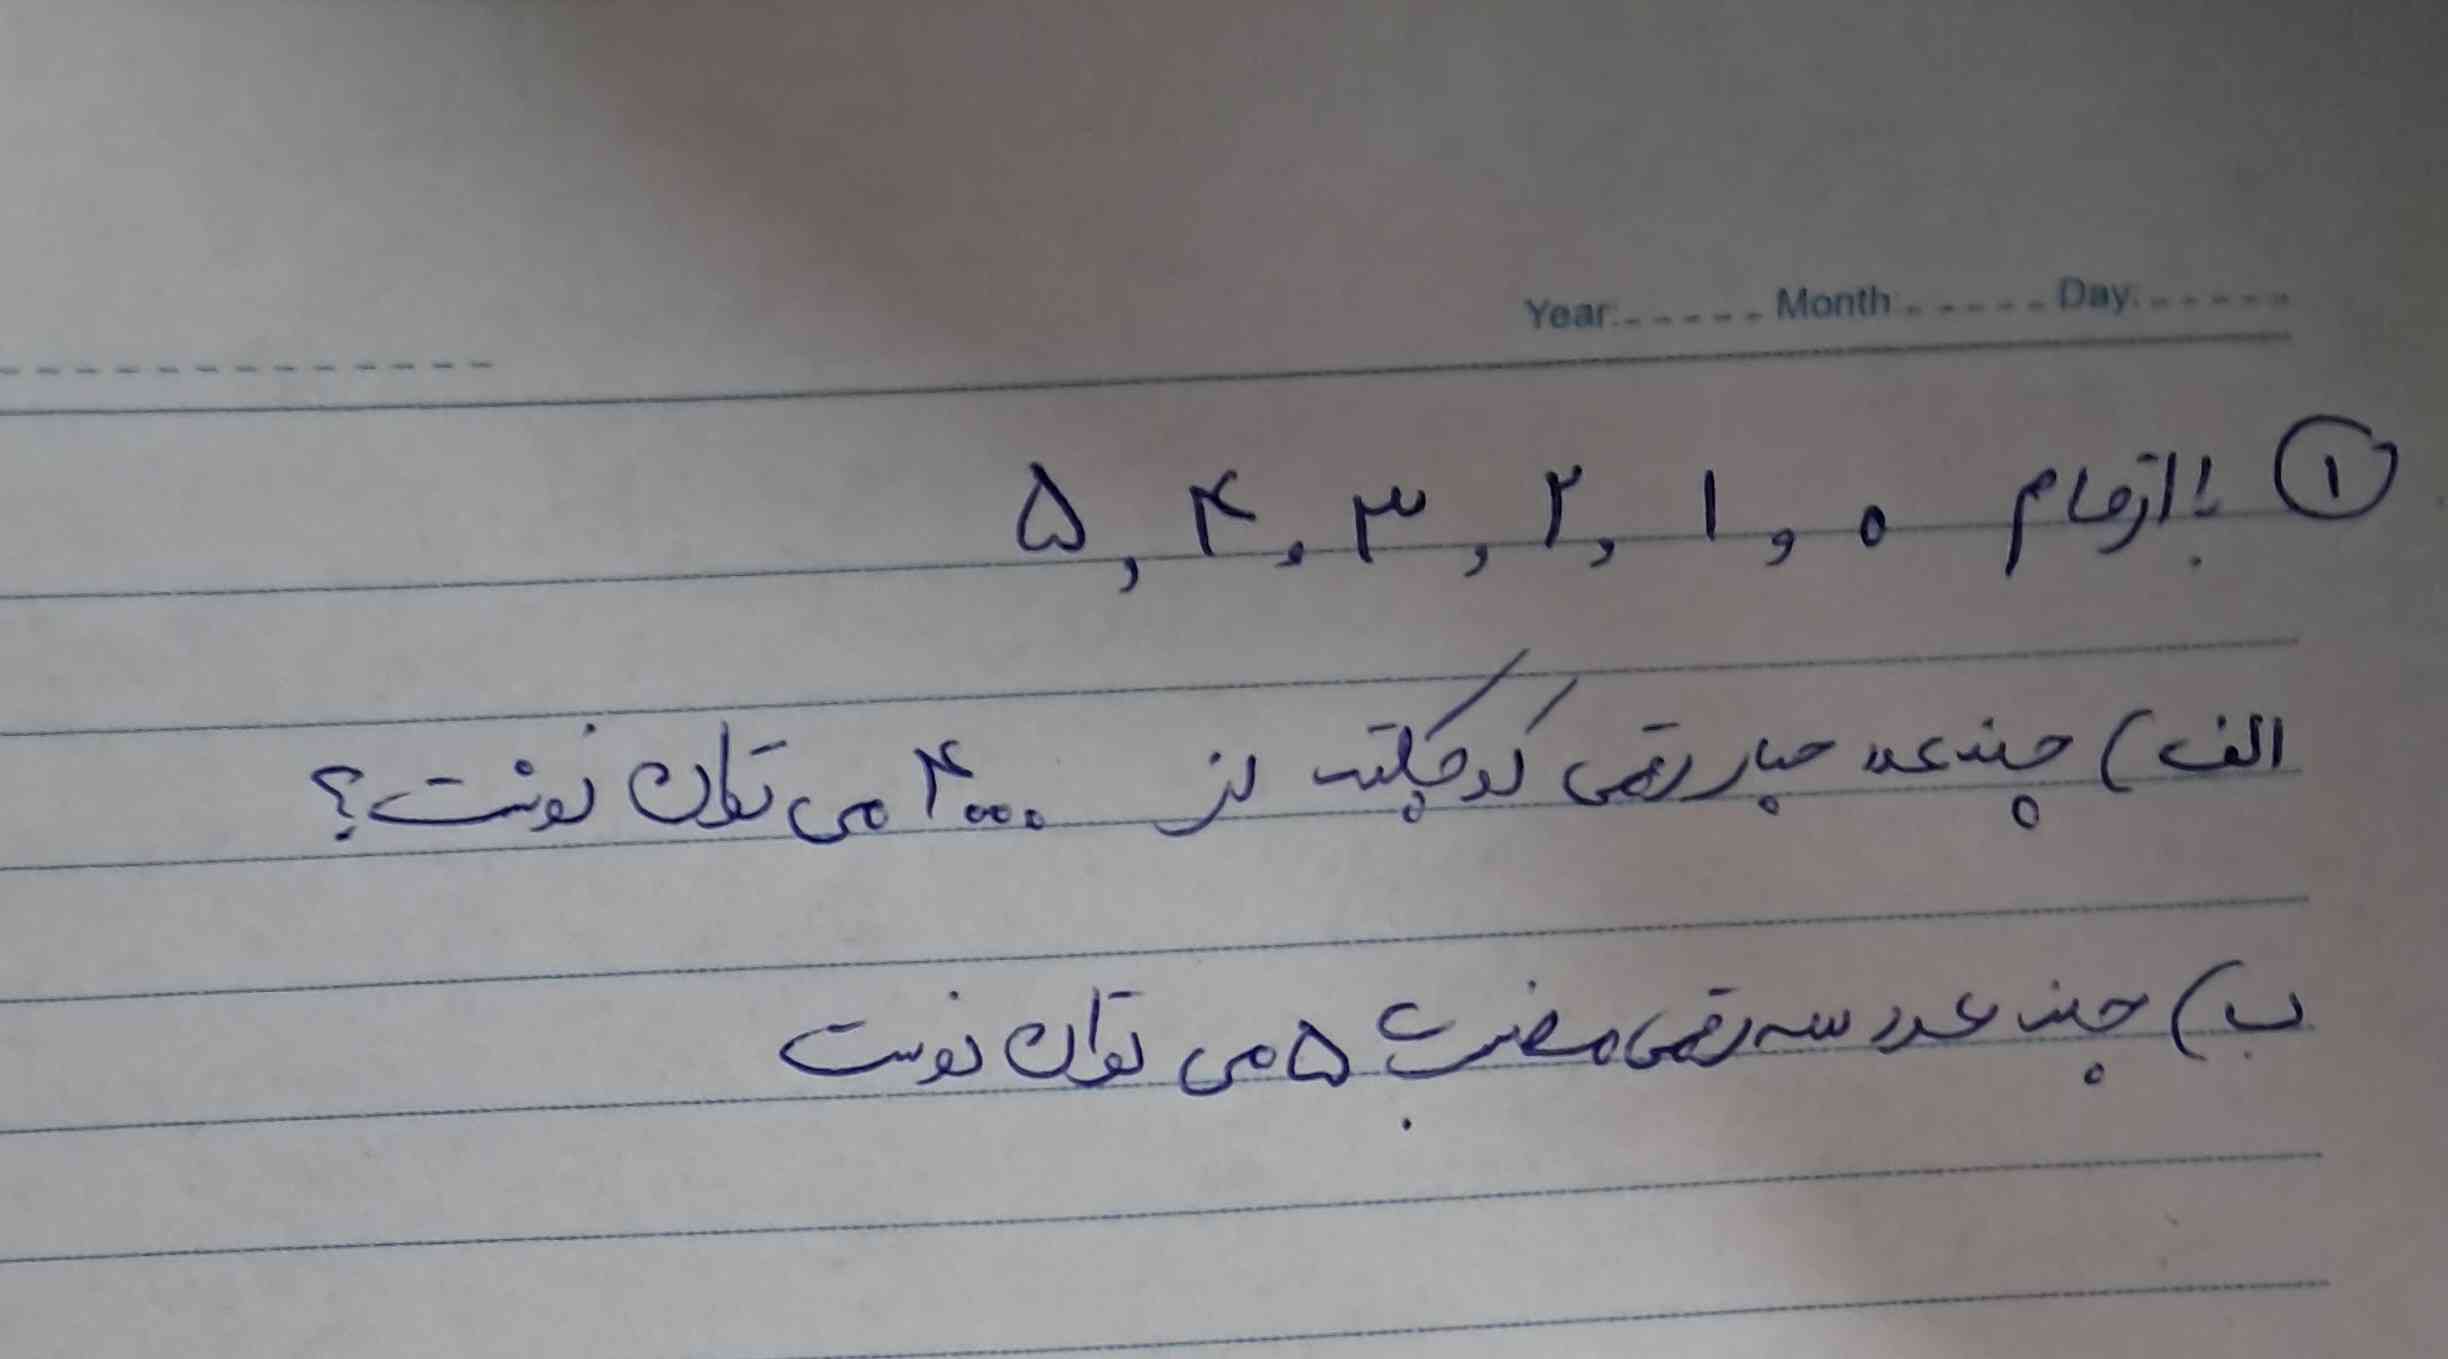 Year:...... Month...... Day:......
① با ارقام ۰ , ۱ , ۲ , ۳ , ۴ , ۵
الف) چند عدد چهار رقمی کوچکتر از ۴۰۰۰ می توان نوشت؟
ب) چند عدد سه رقمی مضرب ۵ می توان نوشت